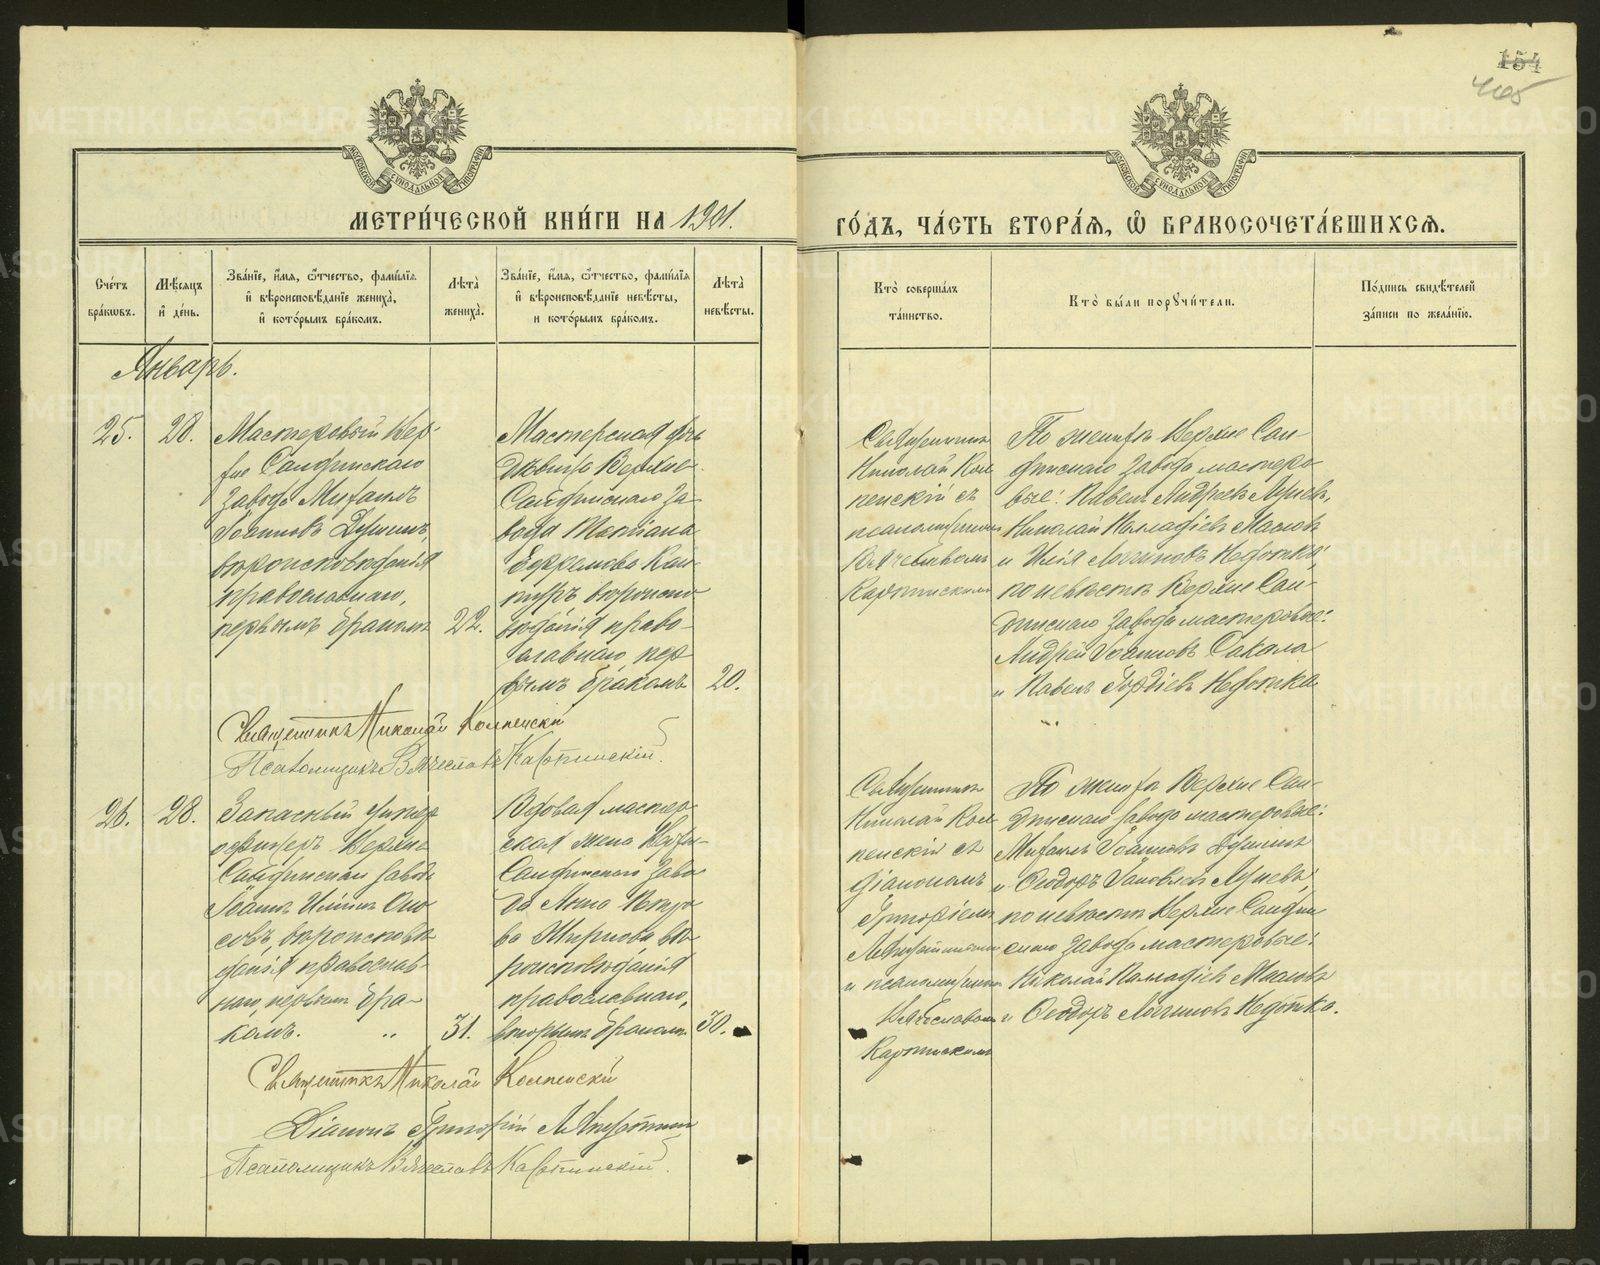 154
465
МОСКОВСКОЙ СѴНОДАЛЬНОЙ ТИПОГРАФІИ
МОСКОВСКОЙ СѴНОДАЛЬНОЙ ТИПОГРАФІИ
МЕТРИ́ЧЕСКОЙ КНИ́ГИ НА 1901.
ГО́ДЪ, ЧА́СТЬ ВТОРА́Я, Ѡ҆ БРАКОСОЧЕТА́ВШИХСЯ.
Сче́тъ бра́кѡвъ.
Мѣ́сяцъ и҆ де́нь.
Зва́нїе, и҆́мя, ѻ҆́тчество, фами́лїя и҆ вѣроисповѣ́данїе жениха̀, и҆ кото́рымъ бра́комъ.
Лѣта̀ жениха̀.
Зва́нїе, и҆́мя, ѻ҆́тчество, фами́лїя и҆ вѣроисповѣ́данїе невѣ́сты, и кото́рымъ бра́комъ.
Лѣта̀ невѣ́сты.
Кто̀ соверша́лъ та́инство.
Кто̀ бы́ли порꙋчи́тели.
По́дпись свидѣ́телей за́писи по жела́нїю.
Январь.
25.
28.
Мастеровый Вер-
хне Салдинскаго
завода Михаилъ
Іоанновъ
вѣроисповѣданія
православнаго,
первымъ бракомъ
22.
Мастерская дочь
дѣвица Верхне
Салдинскаго За-
вода Татіана
Ефремова
вѣроиспо-
вѣданія право-
славнаго, пер
вымъ бракомъ
20.
Священникъ
Николай Кол
пенскій съ
псаломщикомъ
Вячеславомъ
Карпинскимъ
По женихѣ Верхне Сал-
динскаго завода мастеро
вые: Павелъ Андреевъ
Николай Палладіевъ Масловъ
и Илія Логиновъ Недотка;
по невѣстѣ Верхне Сал-
динскаго завода мастеровые:
Андрей Іоанновъ Сакала
и Павелъ Гордіевъ Недотка
Священникъ Николай Колпенскій
Псаломщикъ Вячеславъ Карпинскій.
26.
28.
Запасный унтер
офицеръ Верхне
Салдинскаго завода
Іоаннъ Иліинъ
вѣроисповѣ
данія православ-
наго, первымъ бра-
комъ. „
31.
Вдовая мастер-
ская жена Верхне-
Салдинскаго Заво
да Анна Петро
ва Жирнова вѣ
роисповѣданія
православнаго,
вторымъ бракомъ
30.
Священникъ
Николай Кол
пенскій съ
діакономъ
Григоріемъ
и псаломщикомъ
Вячеславомъ
Карпинскимъ
По женихѣ Верхне Сал-
динскаго завода мастеровые:
Михаилъ Іоанновъ
и Ѳеодоръ Іаковлевъ
по невѣстѣ Верхне Салдин
скаго завода мастеровые:
Николай Палладіевъ Масловъ
и Ѳеодоръ Логиновъ Недотка.
Священникъ Николай Колпенскій
Діаконъ Григорій
Псаломщикъ Вячеславъ Карпинскій.
METRIKI.GASO-URAL.RU